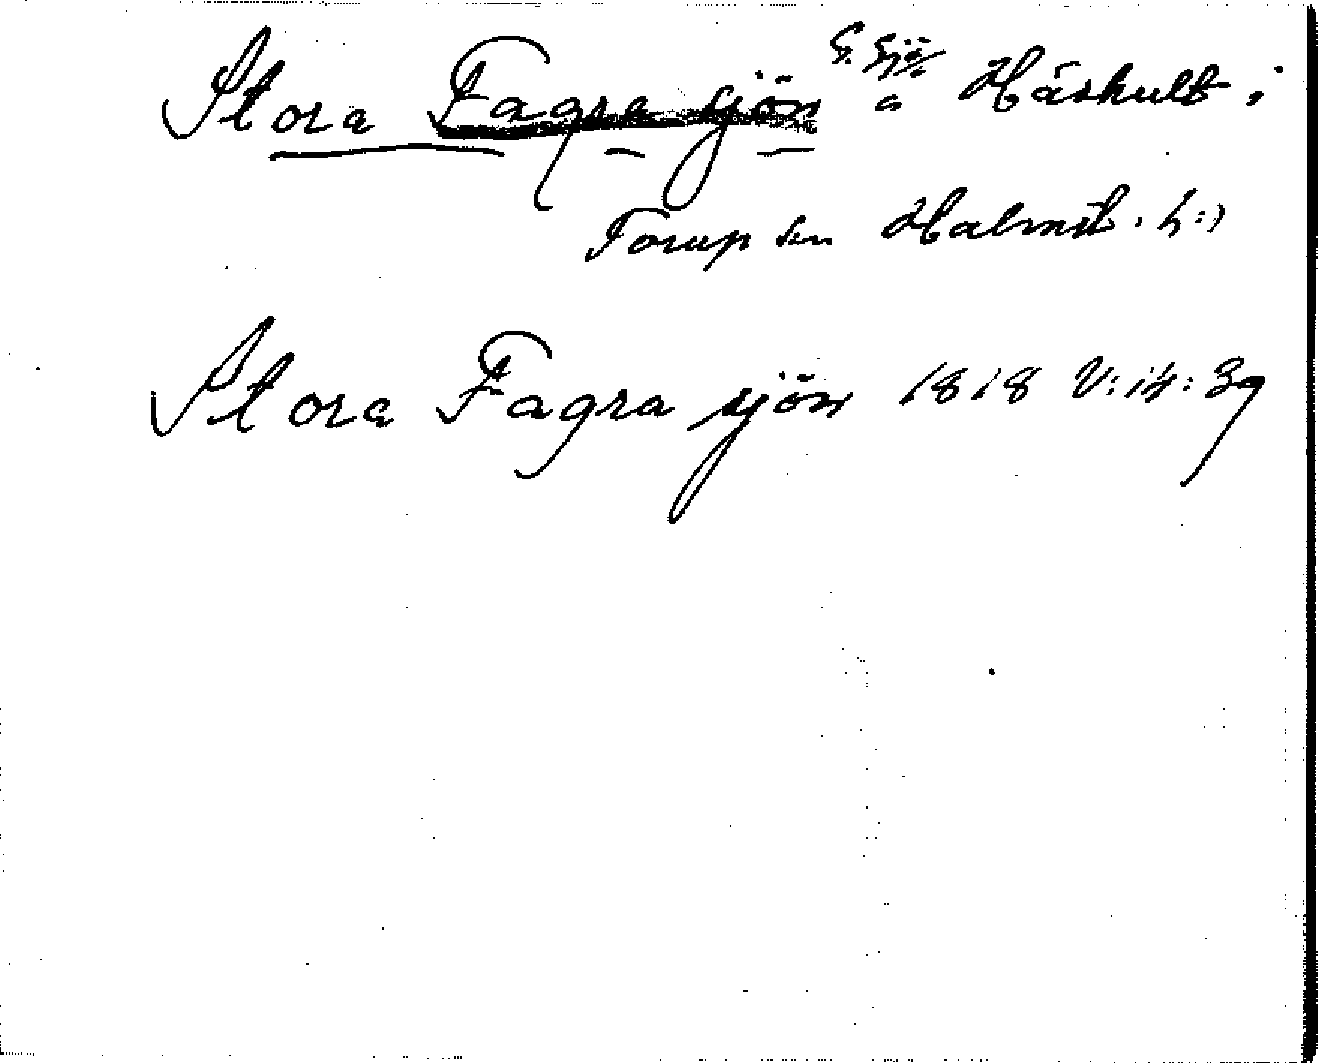 Stora Fagra sjön Sjö å Håskult i
Torup sn Halmst. h:)
Stora Fagra sjön 1818 V:14:39